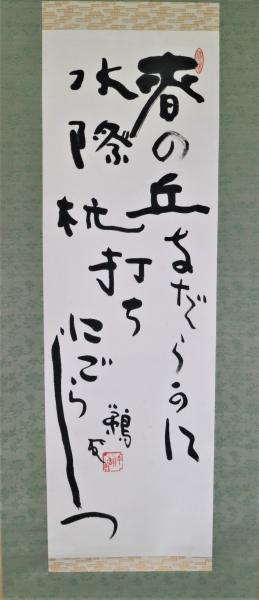 春の丘なだらかに
水際杭打ち
にごらしつつ